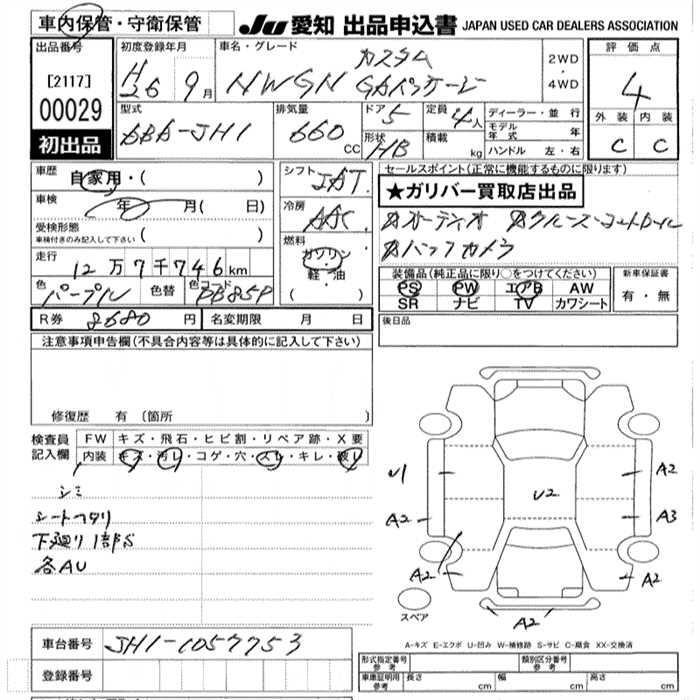 車内保管・守衛保管
JU 愛知 出品申込書 JAPAN USED CAR DEALERS ASSOCIATION
出品番号 [2117] 00029 初出品
初度登録年月 H26 9月
車名・グレード カスタム
NWGN Gパッケージ
2WD・4WD
評価点 4
外装 内装
C C
型式 DBA-JH1
排気量 660 CC
ドア 5
形状 HB
定員 4人
積載 kg
ディーラー・並行
モデル年式 年
ハンドル 左・右
車歴 自家用・( )
車検 年 月( 日)
受検形態 ( )
車検付きのみ記入して下さい
走行 12万7千746km
色 パープル 色替 色コード PB85P
シフト IAT
冷房 AAC
燃料 ガソリン・軽・油 ( )
セールスポイント(正常に機能するものに限ります)
★ガリバー買取店出品
オーディオ クルーズコントロール
バックカメラ
装備品(純正品に限り○をつけてください)
PS PW エアB AW
SR ナビ TV カワシート
新車保証書 有・無
R券 8680円 名変期限 月 日
後日品
注意事項申告欄(不具合内容等は具体的に記入して下さい)
修復歴 有 〔箇所
検査員記入欄
FW キズ・飛石・ヒビ割・リペア跡・X要
内装 キズ・汚レ・コゲ・穴・スレ・キレ・破レ
シミ
シートヘタリ
下廻り1部S
各AU
U1
A2
U2
A2
A3
A2
A2
A2
スペア
A-キズ E-エクボ U-凹み W-補修跡 S-サビ C-腐食 XX-交換済
車台番号 JH1-1057753
登録番号
形式指定番号参考 類別区分番号参考
車庫証明用参考 長さ cm 幅 cm 高さ cm